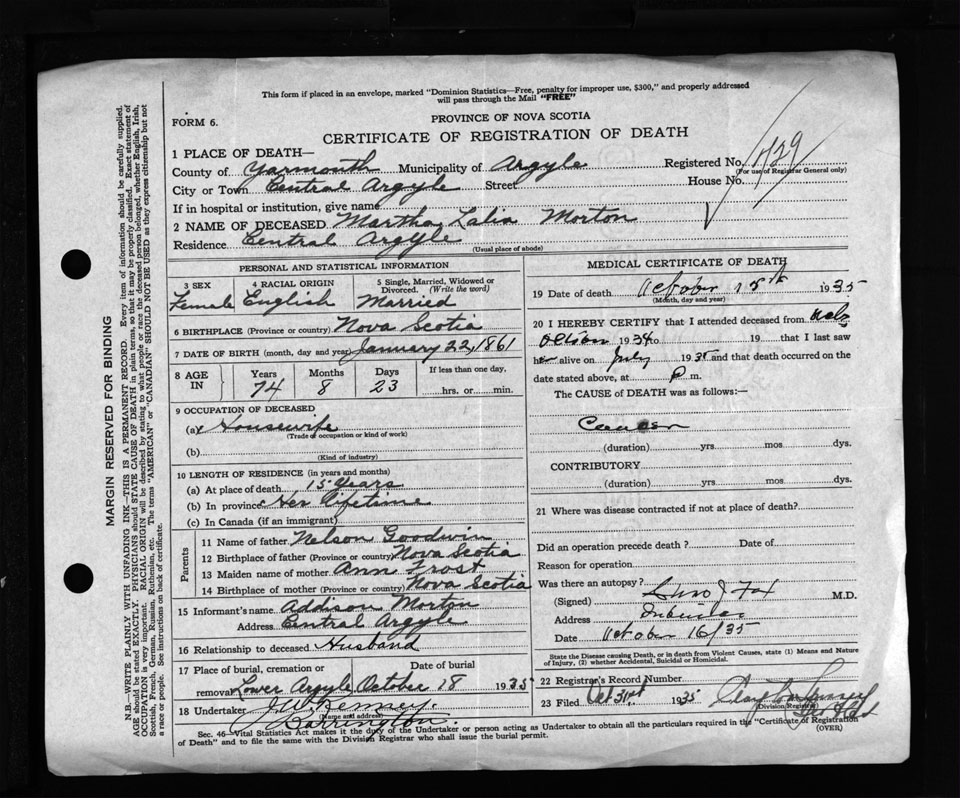 This form if placed in an envelope, marked "Dominion Statistics—Free, penalty for improper use, $300," and properly addressed
will pass through the Mail "FREE"
FORM 6.
PROVINCE OF NOVA SCOTIA
CERTIFICATE OF REGISTRATION OF DEATH
1 PLACE OF DEATH—
County of Yarmouth Municipality of Argyle Registered No. 1429
(For use of Registrar General only)
City or Town Central Argyle Street House No.
If in hospital or institution, give name
2 NAME OF DECEASED Martha Lalia Morton
Residence Central Argyle
(Usual place of abode)
PERSONAL AND STATISTICAL INFORMATION
3 SEX 4 RACIAL ORIGIN 5 Single, Married, Widowed or Divorced. (Write the word)
Female English Married
6 BIRTHPLACE (Province or country) Nova Scotia
7 DATE OF BIRTH (month, day and year) January 22, 1861
8 AGE IN Years Months Days If less than one day,
74 8 23 hrs. or min.
9 OCCUPATION OF DECEASED
(a) Housewife
(Trade occupation or kind of work)
(b)
(Kind of industry)
10 LENGTH OF RESIDENCE (in years and months)
(a) At place of death 15 years
(b) In province Her lifetime
(c) In Canada (if an immigrant)
Parents
11 Name of father Nelson Goodwin
12 Birthplace of father (Province or country) Nova Scotia
13 Maiden name of mother Ann Frost
14 Birthplace of mother (Province or country) Nova Scotia
15 Informant's name Addison Morton
Address Central Argyle
16 Relationship to deceased Husband
17 Place of burial, cremation or Date of burial
removal Lower Argyle October 18 1935
18 Undertaker J.W. Kenney.
(Name and address)
Barrington.
MEDICAL CERTIFICATE OF DEATH
19 Date of death October 15th 1935
(Month, day and year)
20 I HEREBY CERTIFY that I attended deceased from
October 1934 to 19 that I last saw
her alive on July 1935 and that death occurred on the
date stated above, at P m.
The CAUSE of DEATH was as follows:—
Cancer
(duration) yrs. mos. dys.
CONTRIBUTORY
(duration) yrs. mos. dys.
21 Where was disease contracted if not at place of death?
Did an operation precede death? Date of
Reason for operation
Was there an autopsy?
(Signed) Fox M.D.
Address
Date October 16/35
State the Disease causing Death, or in death from Violent Causes, state (1) Means and Nature
of Injury, (2) whether Accidental, Suicidal or Homicidal.
22 Registrar's Record Number
23 Filed Oct 31st 1935
(Division Registrar)
Sec. 46—Vital Statistics Act makes it the duty of the Undertaker or person acting as Undertaker to obtain all the particulars required in the "Certificate of Registration
of Death" and to file the same with the Division Registrar who shall issue the burial permit.
(OVER)
MARGIN RESERVED FOR BINDING
N.B.—WRITE PLAINLY WITH UNFADING INK—THIS IS A PERMANENT RECORD. Every item of information should be carefully supplied.
AGE should be stated EXACTLY. PHYSICIANS should STATE CAUSE OF DEATH in plain terms, so that it may be properly classified. Exact statement of
OCCUPATION is very important. RACIAL ORIGIN will be described by stating to what people or race the deceased person belonged, whether English, Irish,
Scottish, French, German, Russian, Ruthenian, etc. The terms "AMERICAN" or "CANADIAN" SHOULD NOT BE USED as they express citizenship but not
a race or people. See instructions on back of certificate.